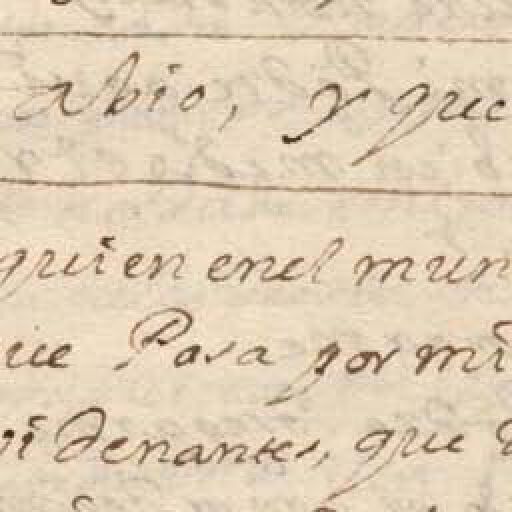 abio, y que
quien enel mun
ue Pasa por mi
vi denantes, que